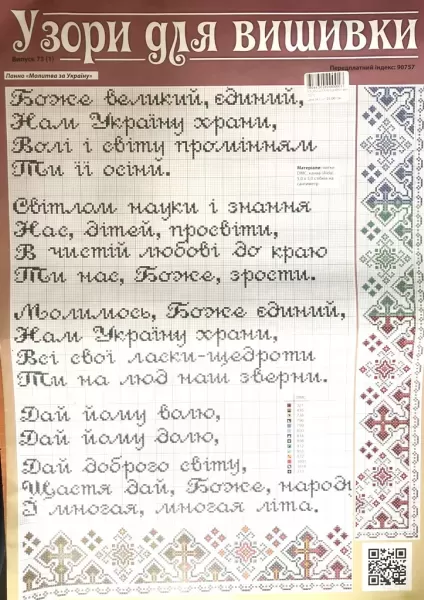 Узори для вишивки
Випуск 73 (1)
Передплатний індекс: 90757
Панно «Молитва за Україну»
Боже великий, єдиний,
Нам Україну храни,
Волі і світу промінням
Ти її осіни.
Матеріали: нитки
DMC, канва Aida,
Світлом науки і знання
Нас, дітей, просвіти,
В чистій любові до краю
Ти нас, Боже, зрости.
Молимось, Боже єдиний,
Нам Україну храни,
Всі свої ласки-щедроти
Ти на люд наш зверни.
Дай йому волю,
Дай йому долю,
Дай доброго світу,
Щастя дай, Боже, народу
І многая, многая літа.